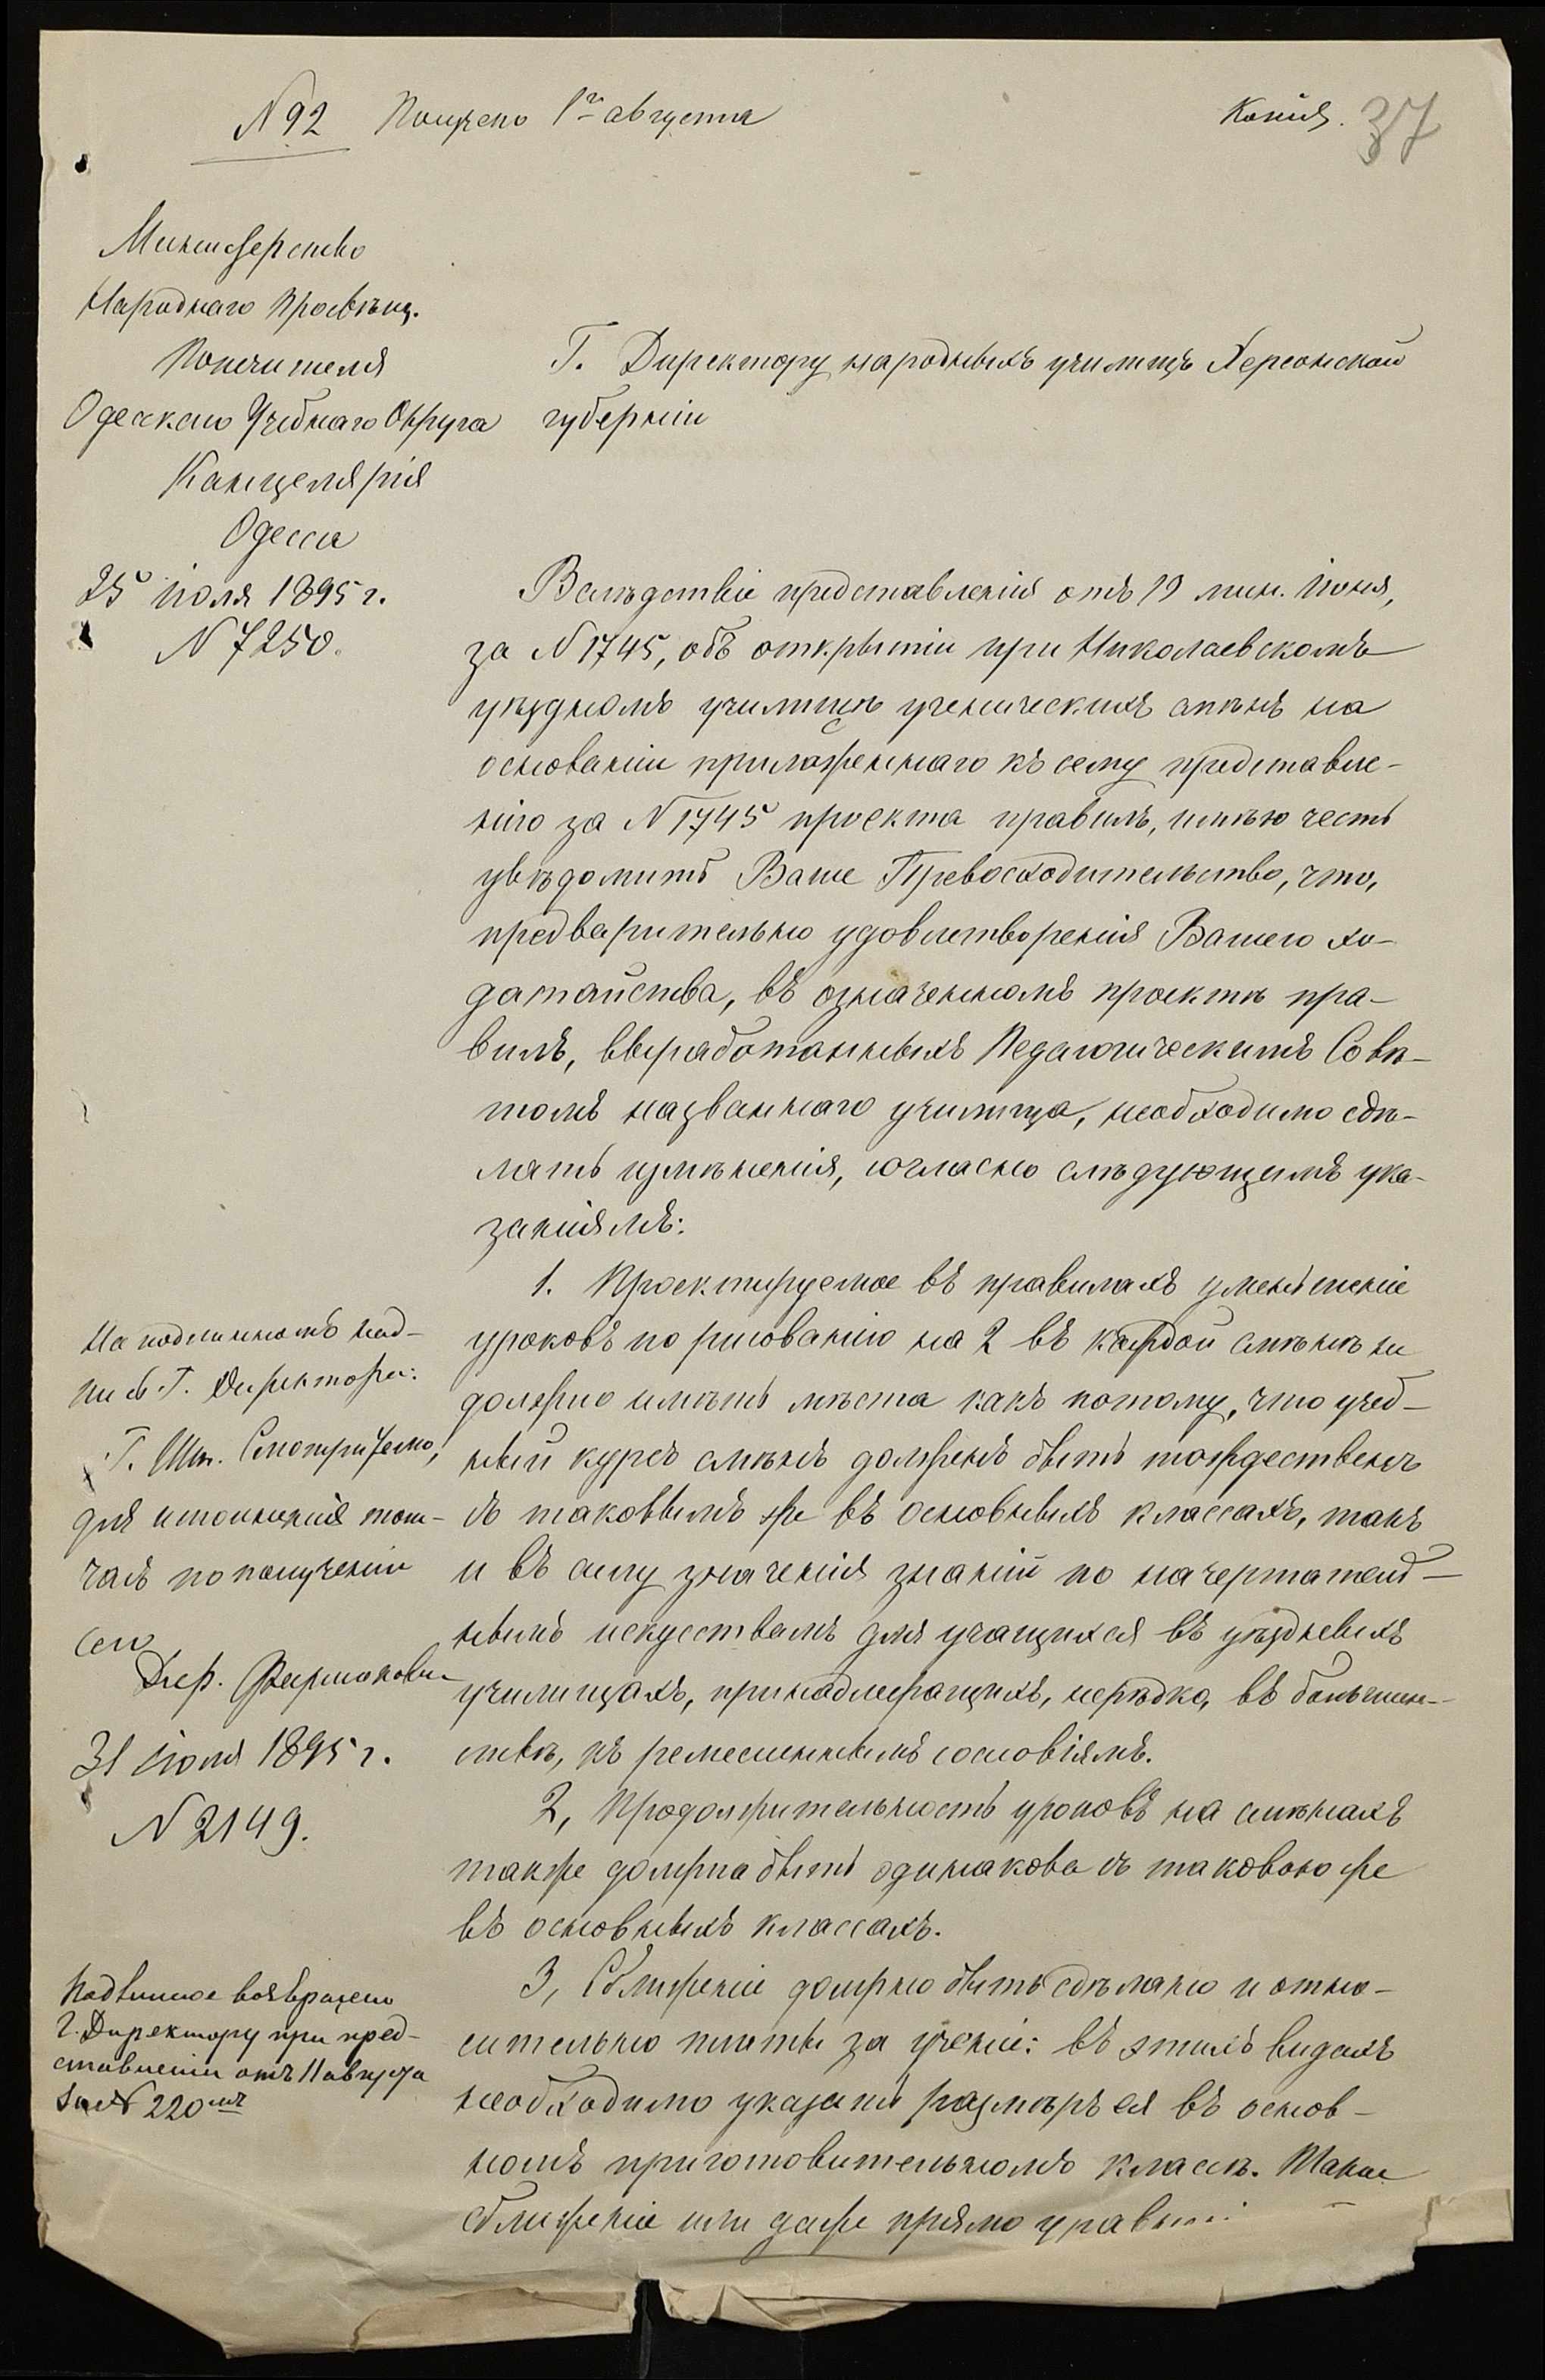 N 92 Получено 1го августа
Копия.
37
Министерство
Народнаго Просвѣщ.
Попечителя
Одесскаго Учебнаго Округа
Канцелярія
Одесса
25 іюля 1895 г.
N 7250.
Г. Директору народныхъ училищъ Херсонской
губерніи
Вслѣдствіе представленія отъ 19 мин. іюня,
за N 1745, объ открытіи при Николаевскомъ
уѣздномъ училищѣ ученическихъ смѣнъ на
основаніи приложеннаго къ сему представле-
нію за N 1745 проекта правилъ, имѣю честь
увѣдомить Ваше Превосходительство, что,
предварительно удовлетворенія Вашего хо-
датайства, въ означенномъ проектѣ пра-
вилъ, выработанныхъ Педагогическимъ Совѣ-
томъ названнаго училища, необходимо сдѣ-
лать измѣненія, согласно слѣдующимъ ука-
заніямъ:
1. Проектируемое въ правилахъ уменьшеніе
уроковъ по рисованію на 2 въ каждой смѣнѣ не
должно имѣть мѣста какъ потому, что учеб-
ный курсъ смѣнъ долженъ быть тождественъ
съ таковымъ же въ основныхъ классахъ, такъ
и въ силу значенія знаній по начертатель-
нымъ искусствамъ для учащихся въ уѣздныхъ
училищахъ, принадлежащихъ, нерѣдко, въ большин-
ствѣ, къ ремесленнымъ сословіямъ.
2, Продолжительность уроковъ на смѣнахъ
также должна быть одинакова съ таковою же
въ основныхъ классахъ.
3, Сближеніе должно быть сдѣлано и отно-
сительно платы за ученіе: въ этихъ видахъ
необходимо указать размѣръ ея въ основ-
номъ приготовительномъ классѣ. Такое
сближеніе или даже прямо
На подлинномъ над-
пись Г. Директора:
Г. Шт. Смотрителю,
для исполненія тот-
часъ по полученіи
сего
Дир.
31 іюля 1895 г.
N 2149.
Подлинное возвращено
Г. Директору при пред-
ставленіи отъ 11 августа
за N 220мъ